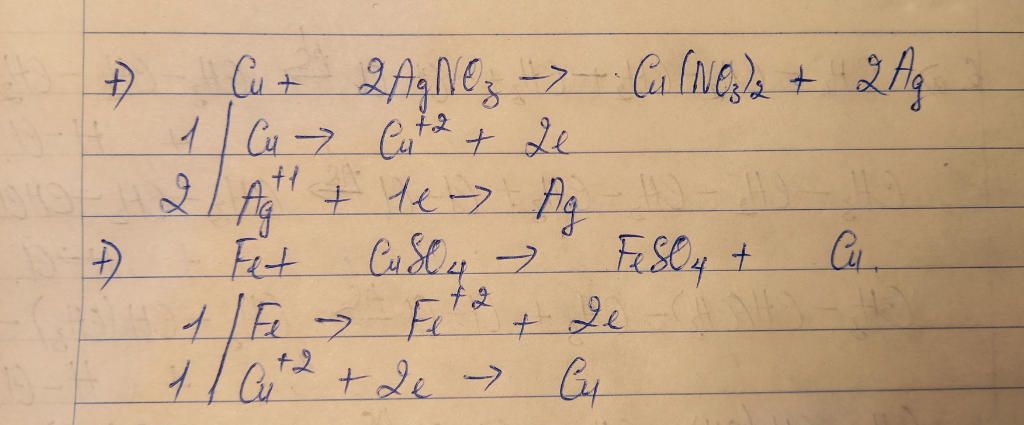 +) Cu + 2AgNO₃ → Cu(NO₃)₂ + 2Ag
1 | Cu → Cu⁺² + 2e
2 | Ag⁺¹ + 1e → Ag
+) Fe + CuSO₄ → FeSO₄ + Cu.
1 | Fe → Fe⁺² + 2e
1 | Cu⁺² + 2e → Cu